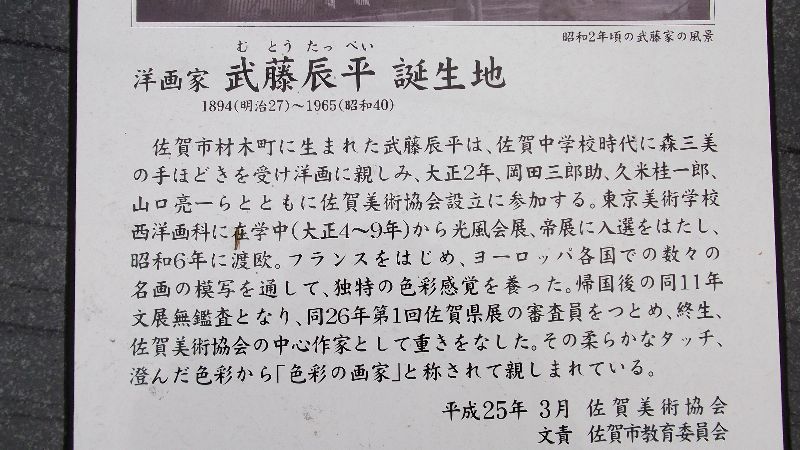 昭和2年頃の武藤家の風景
むとうたっぺい
洋画家 武藤辰平 誕生地
1894(明治27)～1965(昭和40)
佐賀市材木町に生まれた武藤辰平は、佐賀中学校時代に森三美
の手ほどきを受け洋画に親しみ、大正2年、岡田三郎助、久米桂一郎、
山口亮一らとともに佐賀美術協会設立に参加する。東京美術学校
西洋画科に在学中(大正4～9年)から光風会展、帝展に入選をはたし、
昭和6年に渡欧。フランスをはじめ、ヨーロッパ各国での数々の
名画の模写を通して、独特の色彩感覚を養った。帰国後の同11年
文展無鑑査となり、同26年第1回佐賀県展の審査員をつとめ、終生、
佐賀美術協会の中心作家として重きをなした。その柔らかなタッチ、
澄んだ色彩から「色彩の画家」と称されて親しまれている。
平成25年 3月 佐賀美術協会
文責 佐賀市教育委員会